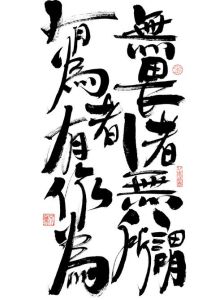 無畏者無所謂
有為者有作為